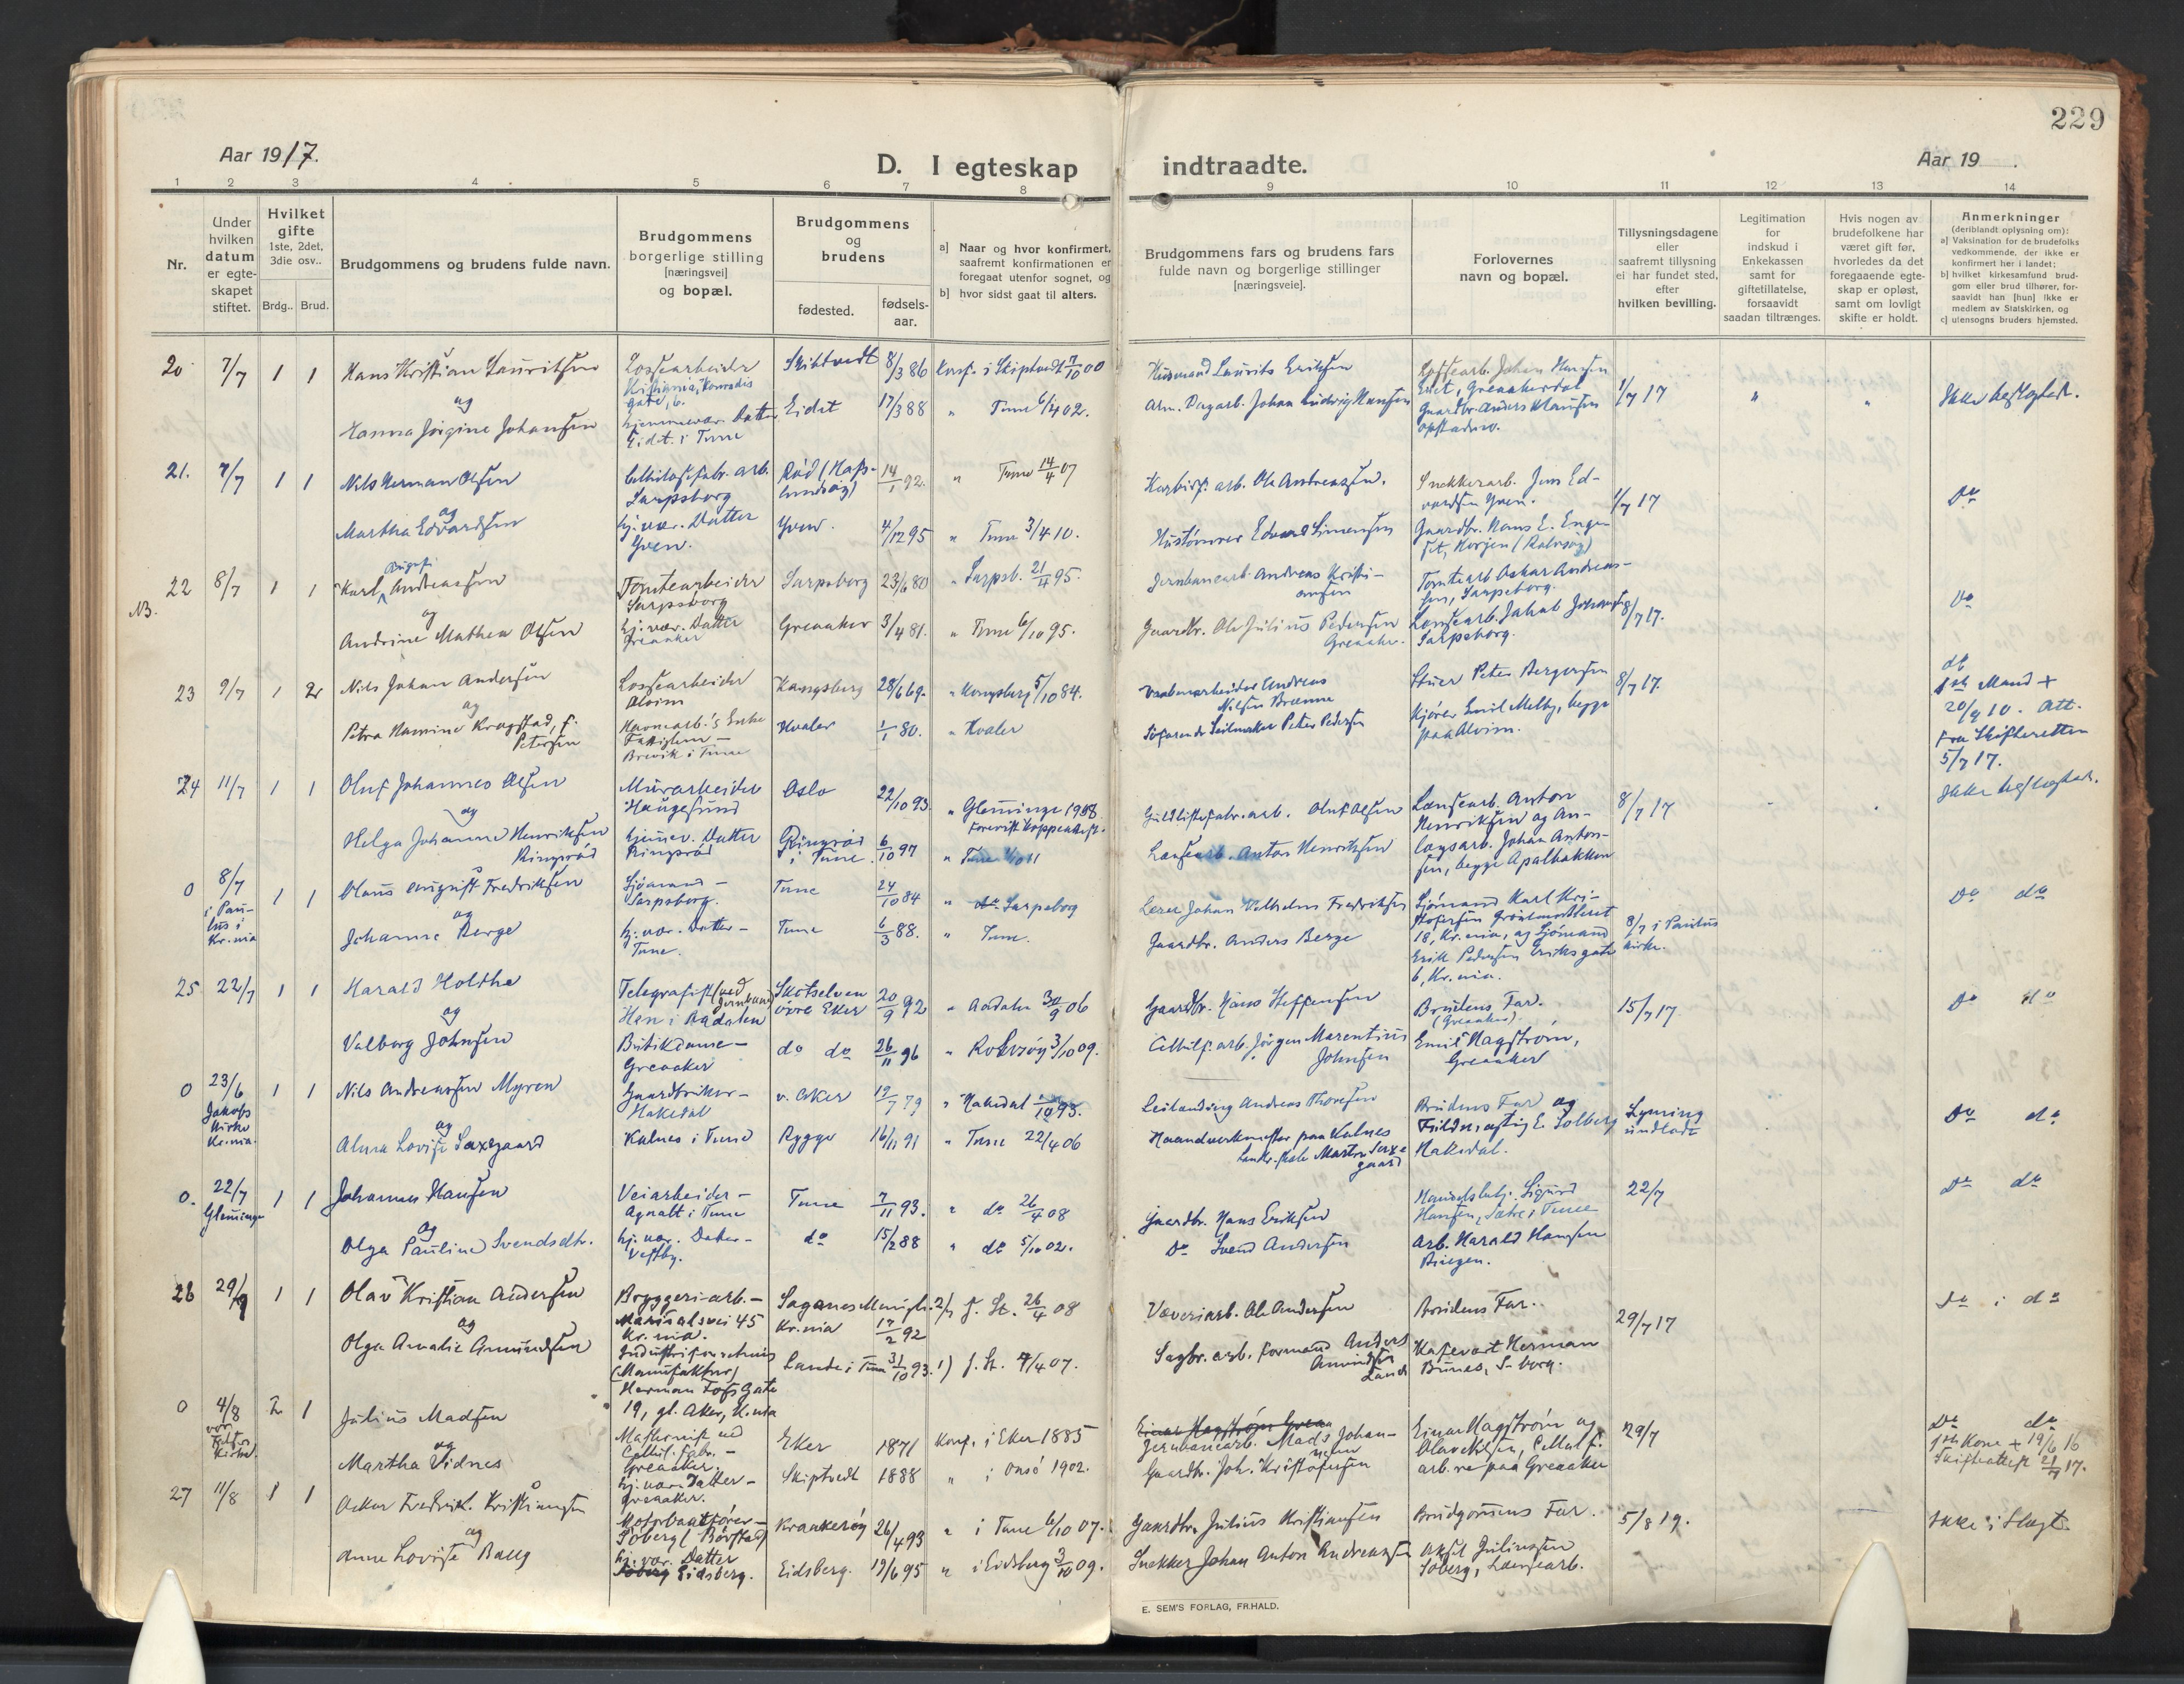 229
Aar 1917.
D. I egteskap indtraadte.
Aar 19 .
1 2 3 4 5 6 7 8 9 10 11 12 13 14
Nr.
Under hvilken datum er egteskapet stiftet.
Hvilket gifte 1ste, 2det, 3die osv..
Brdg.. Brud.
Brudgommens og brudens fulde navn.
Brudgommens borgerlige stilling [næringsvei] og bopæl.
Brudgommens og brudens
fødested.
fødsels-aar.
a] Naar og hvor konfirmert, saafremt konfirmationen er foregaat utenfor sognet, og
b] hvor sidst gaat til alters.
Brudgommens fars og brudens fars fulde navn og borgerlige stillinger [næringsveie].
Forlovernes navn og bopæl.
Tillysningsdagene eller saafremt tillysning ei har fundet sted, efter hvilken bevilling.
Legitimation for indskud i Enkekassen samt for giftetillatelse, forsaavidt saadan tiltrænges.
Hvis nogen av brudefolkene har været gift før, hvorledes da det foregaaende egteskap er opløst, samt om lovligt skifte er holdt.
Anmerkninger (deriblandt oplysning om):
a] Vaksination for de brudefolks vedkommende, der ikke er konfirmert her i landet;
b] hvilket kirkesamfund brudgom eller brud tilhører, forsaavidt han [hun] ikke er medlem av Statskirken, og
c] utensogns bruders hjemsted.
20 7/7 1 1 Hans Kristian Lauritsen
Lossearbeider Kristiania, Konradis gate, 6.
Skibtvedt 8/3 86 Konf. i Skiptvedt 7/10 00
Husmand Laurits Eriksen
Lossearb. Johan Hansen Eidet, Greaakerdal
og
Hanna Jørgine Johansen
hjemmevær. Datter Eidet i Tune
Eidet 17/3 88 " Tune 6/4 02.
Arb. Dagarb. Johan Ludvig Hansen
Gaardbr. Anders Klausen Opstadmo.
1/7 17 " "
Ikke beslegtede.
21. 7/7 1 1 Nils Herman Olsen
Cellulosefabr. arb. Sarpsborg
Rød (Hafslundsøy) 14/1 92. " Tune 14/4 07
Karbidf. arb. Ole Andreassen.
Snekkerarb. Jens Edvardsen Yven.
og
Martha Edvardsen
hj. vær. Datter Yven.
Yven. 4/12 95 " Tune 3/4 10.
Hustømrer Edvard Simensen
Gaardbr. Hans E. Engeset, Korjen (Rolvsøy)
1/7 17
Do
22 8/7 1 1 Karl Birger Andreassen
NB.
Tomtearbeider Sarpsborg
Sarpsborg 23/6 80 " Sarpsb. 21/4 95.
Jernbanearb. Andreas Kristiansen
Tomtearb Oskar Andreassen, Sarpsborg.
og
Andrine Mathea Olsen
hj. vær. Datter Greaaker
Greaaker 3/4 81. " Tune 6/10 95.
Gaardbr. Ole Julius Pedersen Greaaker.
Lossearb. Jakob Johansen Sarpsborg.
8/7 17.
Do
23 9/7 1 2 Nils Johan Andersen
Lossearbeider Alvim
Kongsberg 28/6 69. " Kongsberg 5/10 84.
Vaabenarbeider Andreas Nilsen Brænne
Stuer Peter Bergersen
8/7 17.
og
Petra Hamine Kragstad, f. Petersen
Havnearb.'s Enke Brevik i Tune
Hvaler 1/1 80. " Hvaler
Søfarende Seilmaker Peter Pedersen
Kjører Emil Melby, begge paa Alvim.
do
1ste Mand +
20/4 10. Att.
fra Skifteretten
5/7 17.
24 11/7 1 1 Oluf Johannes Olsen
Murarbeider Haugesund
Oslo 22/10 93 " Glemminge 1908
Guldlistefabr. arb. Oluf Olsen
Lænsearb. Anton Henriksen og Anlægsarb. Johan Antonsen, begge Apalbakken
8/7 17
Ikke beslegtede.
og
Helga Johanne Henriksen Ringerød
hjemv. Datter Ringsrød
Ringsrød i Tune 6/10 97 " Tune
Lænsearb. Anton Henriksen
0 8/7 i Paulus i Kr.nia 1 1 Olaus August Fredriksen
Sjømand - Sarpsborg.
Tune 24/10 84 " Sarpsborg
Lærer Johan Vilhelm Fredriksen
Sjømand Karl Kristofersen 18, Kr.nia, og Sjømand Erik Pedersen Eriks gate 6, Kr.nia.
8/7 i Paulus kirke.
og
Johanne Berge
hj. vær. Datter - Tune.
Tune 6/3 88. " Tune.
Gaardbr. Anders Berge
Do do
25 22/7 1 1 Harald Holthe
Telegrafist (ved Jernbanen) Hen i Aadalen
Skotselven øvre Eker 20/9 92 " Aadalen 30/9 06
Gaardbr. Hans Steffensen
Brudens Far. (Greaaker).
15/7 17
og
Valborg Johnsen
Butikdame - Greaaker
do do 26/11 96 " Rolvsøy 3/10 09.
Cellulf. arb. Jørgen Marentius Johnsen
Emil Hagstrøm, Greaaker
Do do
0 23/6 Jakobs Kirke Kr.nia. 1 1 Nils Andreassen Myren
Gaardbruker - Hakedal
v. Aker 19/7 79 " Hakedal 1/10 93.
Leilænding Andreas Thoresen
Brudens Far og Fuldmægtig E. Solberg Hakedal.
Lysning undladt
og
Alma Lovise Saxegaard
Kalnes i Tune
Rygge 16/11 91 " Tune 22/4 06
Haandverksmester paa Kalnes Landbr. skole Martin Saxegaard
Do do
0. 22/7 Glemminge 1 1 Johannes Hansen
Veiarbeider - Agnalt i Tune
Tune 7/11 93. " do 26/4 08
Gaardbr. Hans Eriksen
Handelsbetj. Sigurd Hansen, Sætre i Tune
22/7
og
Olga Pauline Svendsdtr.
hj. vær. Datter - Vestby.
do 15/2 88 " do 5/10 02.
Do Svend Andersen
Arb. Harald Hansen Bingen.
Do do
26 29/7 1 1 Olav Kristian Andersen
Bryggeri-arb. - Maridalsvei 45 Kr.nia.
Sagenes Menigh. Kr.nia 17/2 92 2/ f. St. 26/4 08
Væveriarb. Ole Andersen
Brudens Far.
29/7 17
og
Olga Amalie Amundsen
(Manufaktur) Herman Foss Gate 19, gl. Aker, K.nia
Lande i Tune 31/10 93. 1) f. St. 7/4 07.
Sagbr. arb. formand Anders Amundsen Lande
Kafevert Herman Bunes, S-borg.
Do i do
0 4/8 vor Frelsers Kirke. 2 1 Julius Madsen
Maskinist ved Cellul. fabr. - Greaaker.
Eker 1871 Konf. i Eker 1885
Jernbanearb. Mads Johansen
Einar Hagstrøm og Olav Nilsen, Cellulf. arb.re paa Greaaker
29/7
og
Martha Vidnes
hj. vær. Datter - Greaaker.
Skiptvedt 1888 " i Onsø 1902.
Gaardbr. Joh. Kristofersen
Do do
1ste Kone + 19/6 16
Skifteattest 21/7 17.
27 11/8 1 1 Oskar Fredrik Kristiansen
Motorbaatfører - Soberg (Børstad)
Kraakerøy 26/4 93 " i Tune 6/10 07.
Gaardbr. Julius Kristiansen
Brudgommens Far.
5/8 19.
og
Anne Lovise Baug
hj. vær. Datter Eidsberg.
Eidsberg. 19/6 95 " i Eidsberg 3/10 09.
Snekker Johan Anton Andreassen
Aksel Juliussen Soberg, Lænsearb.
Ikke i Slegt.
E. SEM'S FORLAG, FR.HALD.